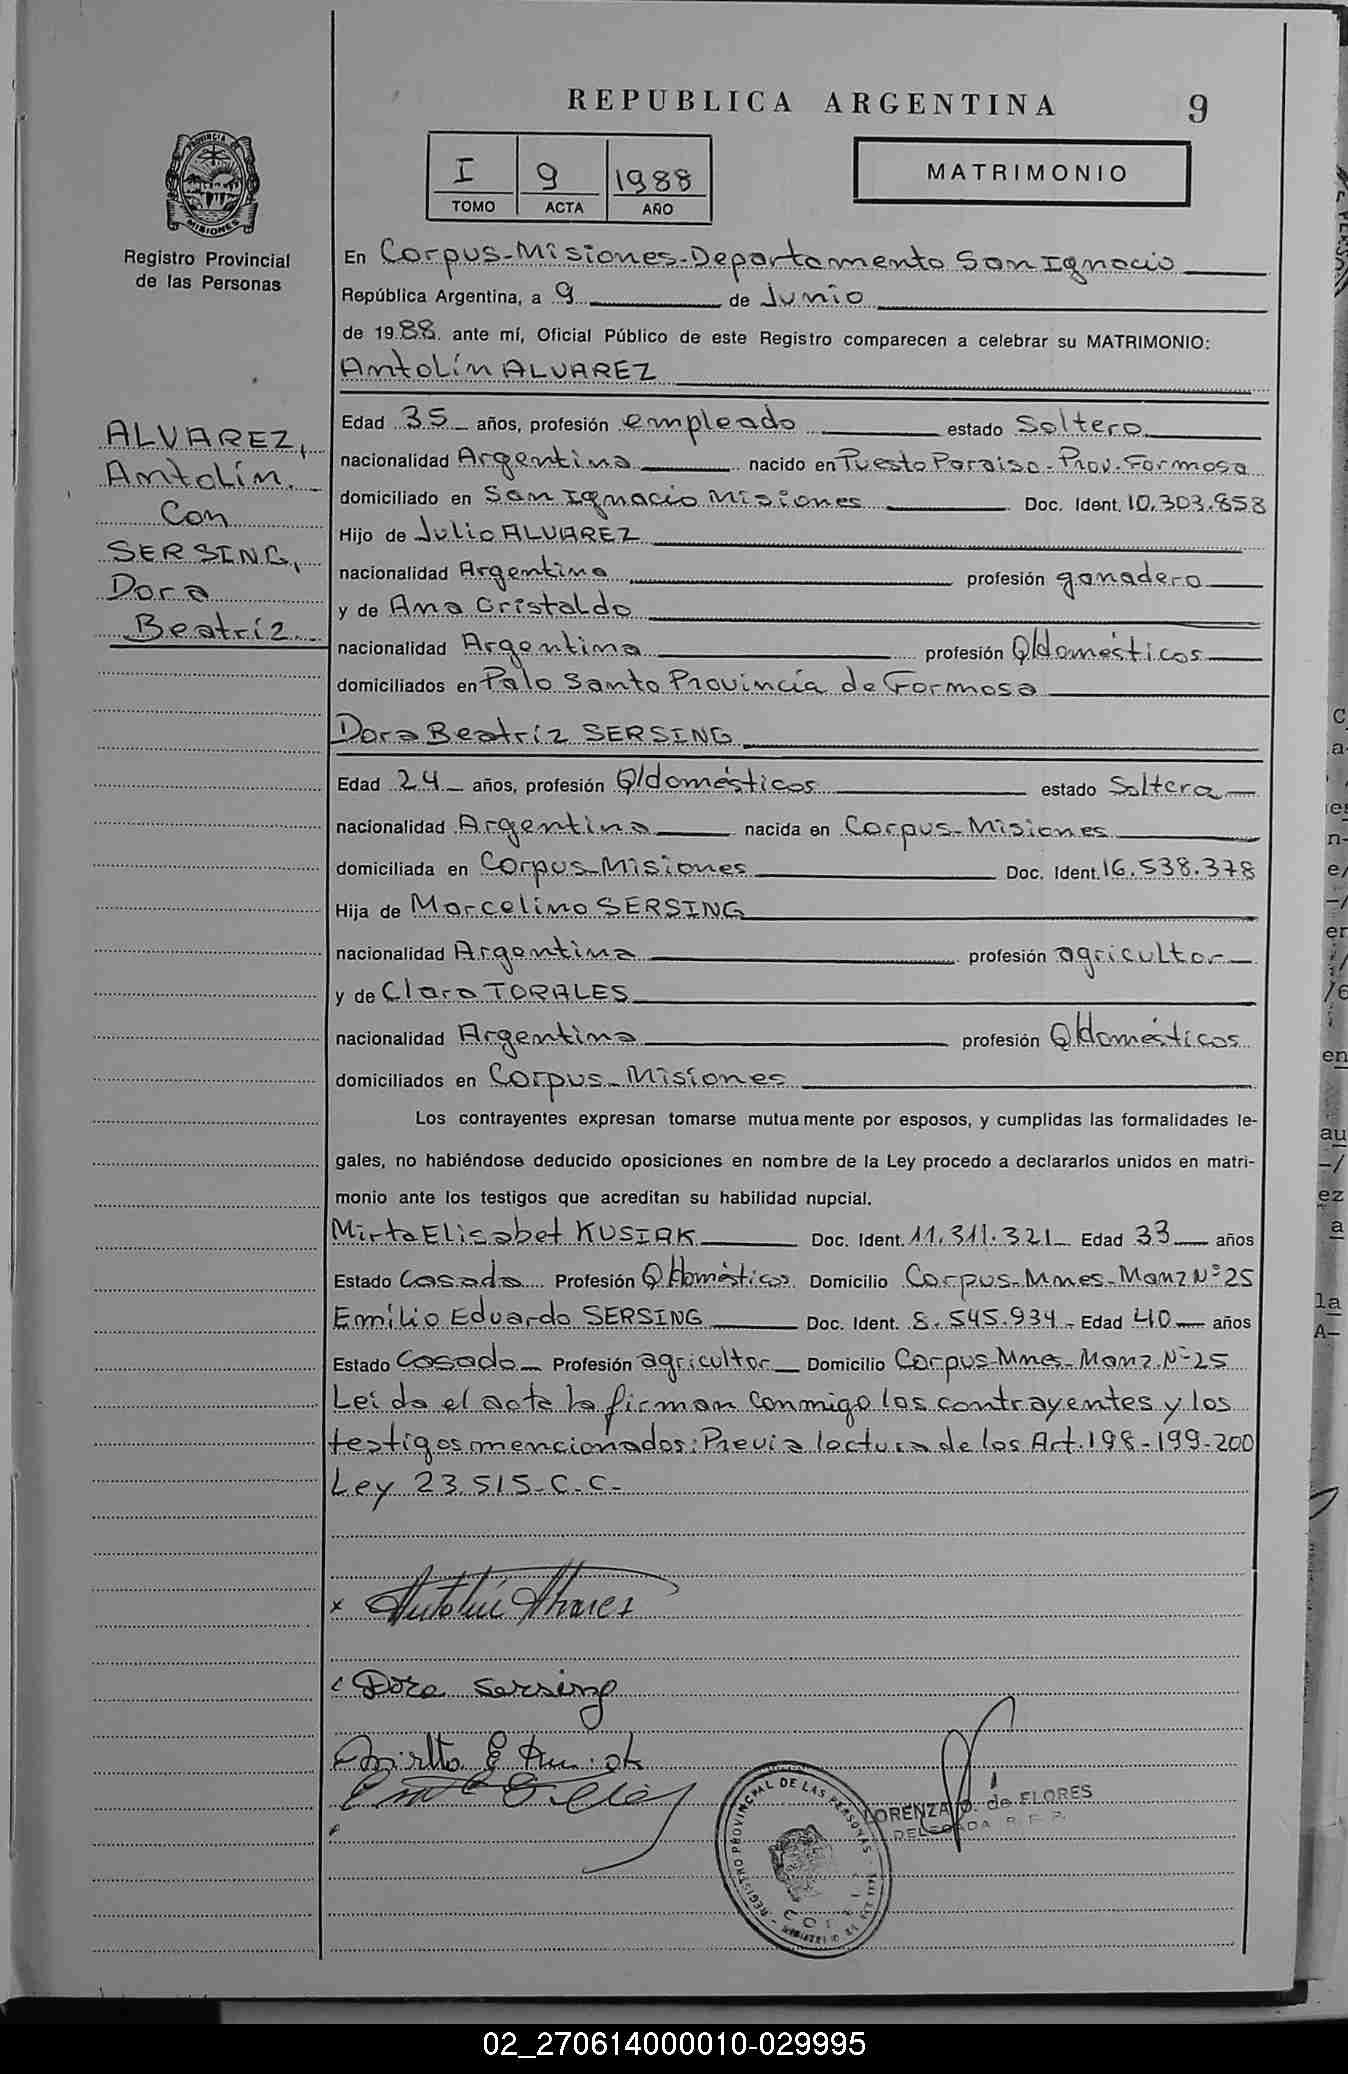 REPUBLICA ARGENTINA
9
I 9 1988
TOMO ACTA AÑO
MATRIMONIO
PROVINCIA DE MISIONES
Registro Provincial
de las Personas
ALVAREZ,
Antolín
Con
SERSING,
Dora
Beatríz
En Corpus-Misiones-Departamento San Ignacio
República Argentina, a 9 de Junio
de 1988. ante mí, Oficial Público de este Registro comparecen a celebrar su MATRIMONIO:
Antolín ALVAREZ
Edad 35 años, profesión empleado estado Soltero
nacionalidad Argentina nacido en Puesto Paraiso-Prov. Formosa
domiciliado en San Ignacio Misiones Doc. Ident. 10.303.858
Hijo de Julio ALVAREZ
nacionalidad Argentina profesión ganadero
y de Ana Cristaldo
nacionalidad Argentina profesión Q/domésticos
domiciliados en Palo Santo Provincia de Formosa
Dora Beatríz SERSING
Edad 24 años, profesión Q/domésticos estado Soltera
nacionalidad Argentina nacida en Corpus-Misiones
domiciliada en Corpus-Misiones Doc. Ident. 16.538.378
Hija de Marcelino SERSING
nacionalidad Argentina profesión agricultor
y de Clara TORALES
nacionalidad Argentina profesión Q/domésticos
domiciliados en Corpus-Misiones
Los contrayentes expresan tomarse mutuamente por esposos, y cumplidas las formalidades le-
gales, no habiéndose deducido oposiciones en nombre de la Ley procedo a declararlos unidos en matri-
monio ante los testigos que acreditan su habilidad nupcial.
Mirta Elisabet KUSIAK Doc. Ident. 11.311.321 Edad 33 años
Estado Casada Profesión Q/domésticos Domicilio Corpus-Mnes-Manz Nº 25
Emilio Eduardo SERSING Doc. Ident. 8.545.934 Edad 40 años
Estado Casado Profesión agricultor Domicilio Corpus-Mnes-Manz. Nº 25
Leída el acta la firman conmigo los contrayentes y los
testigos mencionados: Previa lectura de los Art. 198-199-200
Ley 23.515-C.C.-
x Antolín Alvarez
Dora Sersing
Mirta E
LORENZA D. de FLORES
DELEGADA R. P. P.
REGISTRO PROVINCIAL DE LAS PERSONAS
02_270614000010-029995